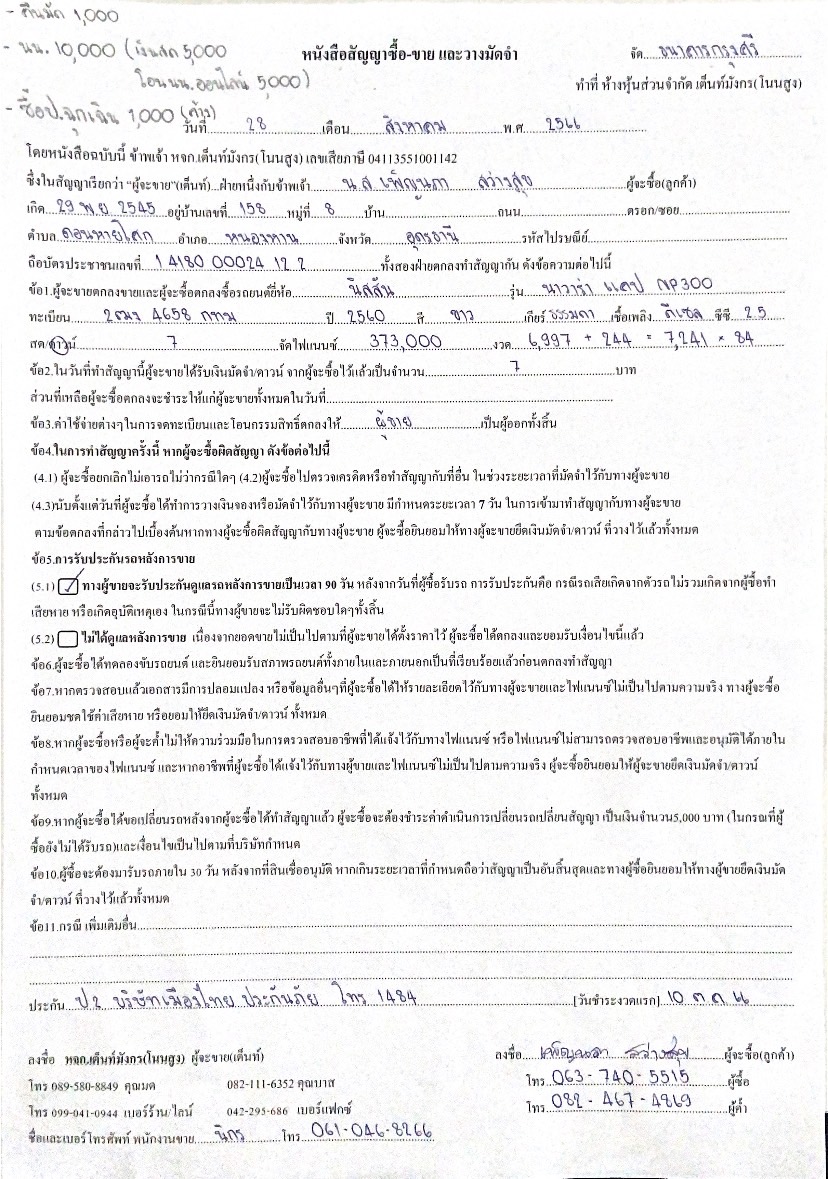 - คืนมัด 1,000
- นน. 10,000 (เงินสด 5,000
โอน นน. ออนไลน์ 5,000)
- ซื้อป.ฉุกเฉิน 1,000 (ค้าง)
หนังสือสัญญาซื้อ-ขาย และวางมัดจำ
จัด ธนาคารกรุงศรี
ทำที่ ห้างหุ้นส่วนจำกัด เต็นท์มังกร(โนนสูง)
วันที่ 28 เดือน สิงหาคม พ.ศ. 2566
โดยหนังสือฉบับนี้ ข้าพเจ้า หจก.เต็นท์มังกร(โนนสูง) เลขเสียภาษี 04113551001142
ซึ่งในสัญญาเรียกว่า "ผู้จะขาย"(เต็นท์) ฝ่ายหนึ่งกับข้าพเจ้า น.ส เพ็ญนภา สว่างสุข ผู้จะซื้อ(ลูกค้า)
เกิด 29 พ.ย 2545 อยู่บ้านเลขที่ 158 หมู่ที่ 8 บ้าน ถนน ตรอก/ซอย
ตำบล ดอนหายโศก อำเภอ หนองหาน จังหวัด อุดรธานี รหัสไปรษณีย์
ถือบัตรประชาชนเลขที่ 1 4180 00024 12 2 ทั้งสองฝ่ายตกลงทำสัญญากัน ดังข้อความต่อไปนี้
ข้อ1.ผู้จะขายตกลงขายและผู้จะซื้อตกลงซื้อรถยนต์ยี่ห้อ นิสสัน รุ่น นาวาร่า แคป NP300
ทะเบียน 2ฒฆ 4658 กทม ปี 2560 สี ขาว เกียร์ ธรรมดา เชื้อเพลิง ดีเซล ซีซี 2.5
สด/ดาวน์ 7 จัดไฟแนนซ์ 373,000 งวด 6,997 + 244 = 7,241 × 84
ข้อ2.ในวันที่ทำสัญญานี้ผู้จะขายได้รับเงินมัดจำ/ดาวน์ จากผู้จะซื้อไว้แล้วเป็นจำนวน 7 บาท
ส่วนที่เหลือผู้จะซื้อตกลงจะชำระให้แก่ผู้จะขายทั้งหมดในวันที่
ข้อ3.ค่าใช้จ่ายต่างๆในการจดทะเบียนและโอนกรรมสิทธิ์ตกลงให้ ผู้ขาย เป็นผู้ออกทั้งสิ้น
ข้อ4.ในการทำสัญญาครั้งนี้ หากผู้จะซื้อผิดสัญญา ดังข้อต่อไปนี้
(4.1) ผู้จะซื้อยกเลิกไม่เอารถไม่ว่ากรณีใดๆ (4.2)ผู้จะซื้อไปตรวจเครดิตหรือทำสัญญากับที่อื่น ในช่วงระยะเวลาที่มัดจำไว้กับทางผู้จะขาย
(4.3)นับตั้งแต่วันที่ผู้จะซื้อได้ทำการวางเงินจองหรือมัดจำไว้กับทางผู้จะขาย มีกำหนดระยะเวลา 7 วัน ในการเข้ามาทำสัญญากับทางผู้จะขาย
ตามข้อตกลงที่กล่าวไปเบื้องต้นหากทางผู้จะซื้อผิดสัญญากับทางผู้จะขาย ผู้จะซื้อยินยอมให้ทางผู้จะขายยึดเงินมัดจำ/ดาวน์ ที่วางไว้แล้วทั้งหมด
ข้อ5.การรับประกันรถหลังการขาย
(5.1) ทางผู้ขายจะรับประกันดูแลรถหลังการขายเป็นเวลา 90 วัน หลังจากวันที่ผู้ซื้อรับรถ การรับประกันคือ กรณีรถเสียเกิดจากตัวรถไม่รวมเกิดจากผู้ซื้อทำ
เสียหาย หรือเกิดอุบัติเหตุเอง ในกรณีนี้ทางผู้ขายจะไม่รับผิดชอบใดๆทั้งสิ้น
(5.2) ไม่ได้ดูแลหลังการขาย เนื่องจากยอดขายไม่เป็นไปตามที่ผู้จะขายได้ตั้งราคาไว้ ผู้จะซื้อได้ตกลงและยอมรับเงื่อนไขนี้แล้ว
ข้อ6.ผู้จะซื้อได้ทดลองขับรถยนต์ และยินยอมรับสภาพรถยนต์ทั้งภายในและภายนอกเป็นที่เรียบร้อยแล้วก่อนตกลงทำสัญญา
ข้อ7.หากตรวจสอบแล้วเอกสารมีการปลอมแปลง หรือข้อมูลอื่นๆที่ผู้จะซื้อได้ให้รายละเอียดไว้กับทางผู้จะขายและไฟแนนซ์ไม่เป็นไปตามความจริง ทางผู้จะซื้อ
ยินยอมชดใช้ค่าเสียหาย หรือยอมให้ยึดเงินมัดจำ/ดาวน์ ทั้งหมด
ข้อ8.หากผู้จะซื้อหรือผู้จะค้ำไม่ให้ความร่วมมือในการตรวจสอบอาชีพที่ได้แจ้งไว้กับทางไฟแนนซ์ หรือไฟแนนซ์ไม่สามารถตรวจสอบอาชีพและอนุมัติได้ภายใน
กำหนดเวลาของไฟแนนซ์ และหากอาชีพที่ผู้จะซื้อได้แจ้งไว้กับทางผู้ขายและไฟแนนซ์ไม่เป็นไปตามความจริง ผู้จะซื้อยินยอมให้ผู้จะขายยึดเงินมัดจำ/ดาวน์
ทั้งหมด
ข้อ9.หากผู้จะซื้อได้ขอเปลี่ยนรถหลังจากผู้จะซื้อได้ทำสัญญาแล้ว ผู้จะซื้อจะต้องชำระค่าดำเนินการเปลี่ยนรถเปลี่ยนสัญญา เป็นเงินจำนวน5,000 บาท (ในกรณที่ผู้
ซื้อยังไม่ได้รับรถ)และเงื่อนไขเป็นไปตามที่บริษัทกำหนด
ข้อ10.ผู้ซื้อจะต้องมารับรถภายใน 30 วัน หลังจากที่สินเชื่ออนุมัติ หากเกินระยะเวลาที่กำหนดถือว่าสัญญาเป็นอันสิ้นสุดและทางผู้ซื้อยินยอมให้ทางผู้ขายยึดเงินมัด
จำ/ดาวน์ ที่วางไว้แล้วทั้งหมด
ข้อ11.กรณี เพิ่มเติมอื่น
ประกัน ป.2 บริษัทเมืองไทย ประกันภัย โทร 1484 [วันชำระงวดแรก] 10 ต.ค 66
ลงชื่อ หจก.เต็นท์มังกร(โนนสูง) ผู้จะขาย(เต็นท์)
ลงชื่อ เพ็ญนภา สว่างสุข ผู้จะซื้อ(ลูกค้า)
โทร 089-580-8849 คุณมด 082-111-6352 คุณบาส
โทร 063-740-5515 ผู้ซื้อ
โทร 099-041-0944 เบอร์ร้าน/ไลน์ 042-295-686 เบอร์แฟกซ์
โทร 082-467-4869 ผู้ค้ำ
ชื่อและเบอร์โทรศัพท์ พนักงานขาย นิกร โทร 061-046-8266